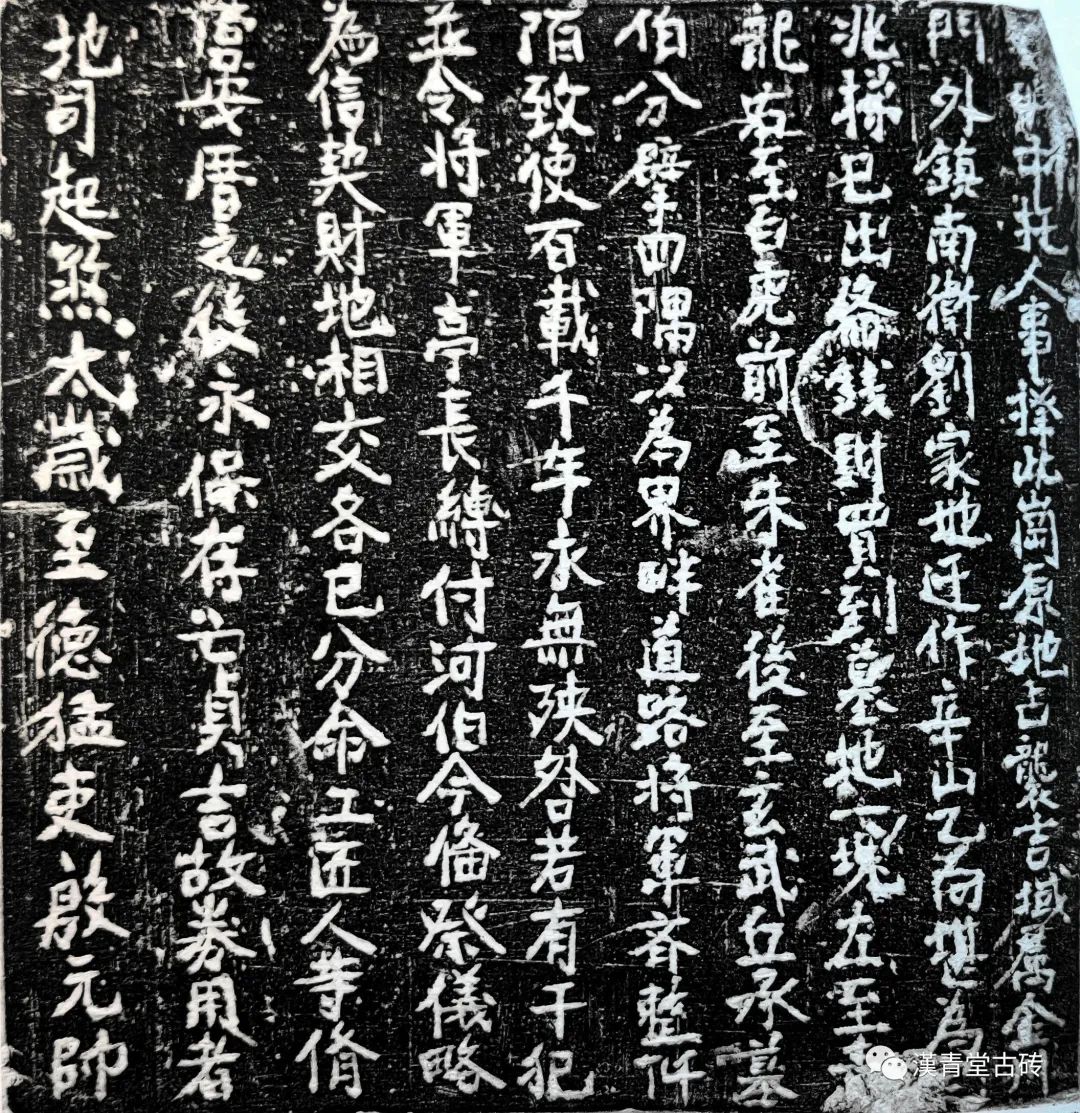 中托人事擇此崗原地占襲吉域屬金川
門外鎮南衛劉家地迁作辛山乙向堪為
兆梯已出俻錢財買到墓地一塊左至青
龍右至白虎前至朱雀後至玄武丘承墓
伯分擘四隅以為界畔道路將軍齐整阡
陌致使百載千年永無殃咎若有干犯
並令將軍亭長縛付河伯今俻祭儀略
為信契財地相交各已分命工匠人等脩
營安厝之後永保存亡貞吉故券用者
地司起煞太歲至德猛吏殷元帥
漢青堂古砖